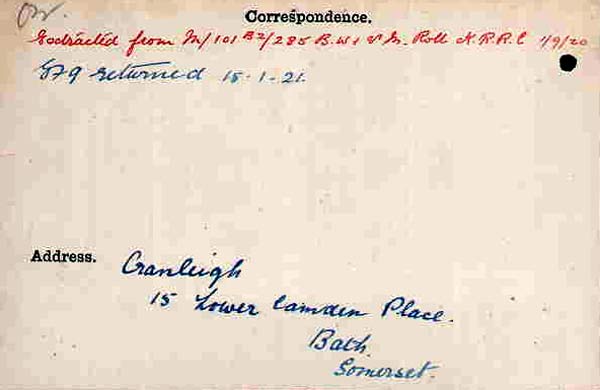 Correspondence.
Extracted from M/101 B2/285 B.W & V.M. Roll K.R.R.C 1/9/20
returned 15.1.21.
Address.
Cranleigh
15 Lower Camden Place.
Bath.
Somerset.